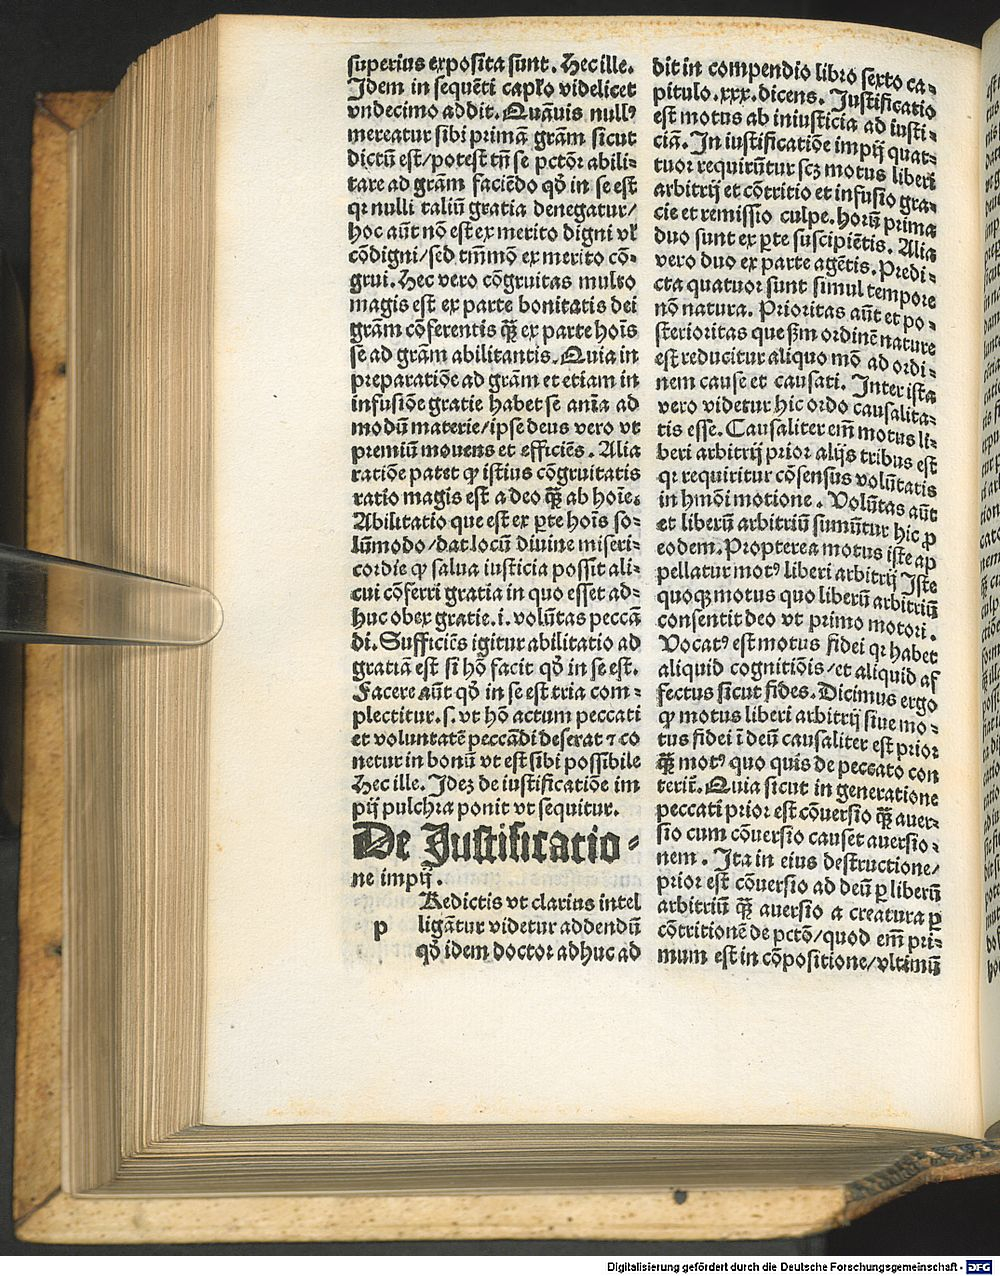 superius exposita sunt. Hec ille.
Idem in sequẽti capło videlicet
vndecimo addit. Quãuis nullꝰ
mereatur sibi primã grãm sicut
dictũ est/potest tñ se pctõꝛ abili⸗
tare ad grãm faciẽdo qđ in se est
qꝛ nulli taliũ gratia denegatur/
hoc aũt nõ est ex merito digni vł
cõdigni/sed tm̃mõ ex merito cõ⸗
grui. Hec vero cõgruitas multo
magis est ex parte bonitatis dei
grãm cõferentis q̃ꝫ ex parte hoĩs
se ad grãm abilitantis. Quia in
preparatiõe ad grãm et etiam in
infusiõe gratie habet se aĩa ad
modũ materie/ipse deus vero vt
premiũ mouens et efficiẽs. Alia
ratiõe patet ꝙ istius cõgruitatis
ratio magis est a deo q̃ꝫ ab hoĩe.
Abilitatio que est ex ꝑte hoĩs so⸗
lũmodo/dat locũ diuine miseri⸗
cordie ꝙ salua iusticia possit ali⸗
cui cõferri gratia in quo esset ad⸗
huc obex gratie.i. volũtas peccã
di. Sufficiẽs igitur abilitatio ad
gratiã est si hõ facit qđ in se est.
Facere aũt qđ in se est tria com⸗
plectitur.s. vt hõ actum peccati
et voluntatẽ peccãdi deserat ⁊ co
netur in bonũ vt est sibi possibile
Hec ille. Ideꝫ de iustificatiõe im
pij pulchra ponit vt sequitur.
De Iustificatio⸗
ne impij.
p
Redictis vt clarius intel
ligãtur videtur addendũ
qđ idem doctor adhuc ad
dit in compendio libro sexto ca⸗
pitulo.xxx.dicens. Iustificatio
est motus ab iniusticia ad iusti⸗
ciã. In iustificatiõe impij quat⸗
tuor requirũtur scꝫ motus liberi
arbitrij et cõtritio et infusio gra⸗
cie et remissio culpe. horũ prima
duo sunt ex ꝑte suscipiẽtis. Alia
vero duo ex parte agẽtis. Predi⸗
cta quatuor sunt simul tempore
nõ natura. Prioritas aũt et po⸗
sterioritas que ẜm ordinẽ nature
est reducitur aliquo mõ ad ordi⸗
nem cause et causati. Inter ista
vero videtur hic ordo causalita⸗
tis esse. Causaliter em̃ motus li⸗
beri arbitrij prior alijs tribus est
qꝛ requiritur cõsensus volũtatis
in hm̃oi motione. Volũtas aũt
et liberũ arbitriũ sumũtur hic ꝓ
eodem. Propterea motus iste ap
pellatur motꝰ liberi arbitrij Iste
quoqꝫ motus quo liberũ arbitriũ
consentit deo vt primo motori.
Vocatꝰ est motus fidei qꝛ habet
aliquid cognitiõis/et aliquid af
fectus sicut fides. Dicimus ergo
ꝙ motus liberi arbitrij siue mo⸗
tus fidei ĩ deũ causaliter est prior
q̃ꝫ motꝰ quo quis de peccato con
teriť. Quia sicut in generatione
peccati prior est cõuersio q̃ꝫ auer⸗
sio cum cõuersio causet auersio⸗
nem. Ita in eius destructione/
prior est cõuersio ad deũ ꝑ liberũ
arbitriũ q̃ꝫ auersio a creatura ꝑ
cõtritionẽ de pctõ/quod em̃ pri⸗
mum est in cõpositione/vltimũ
Digitalisierung gefördert durch die Deutsche Forschungsgemeinschaft - DFG